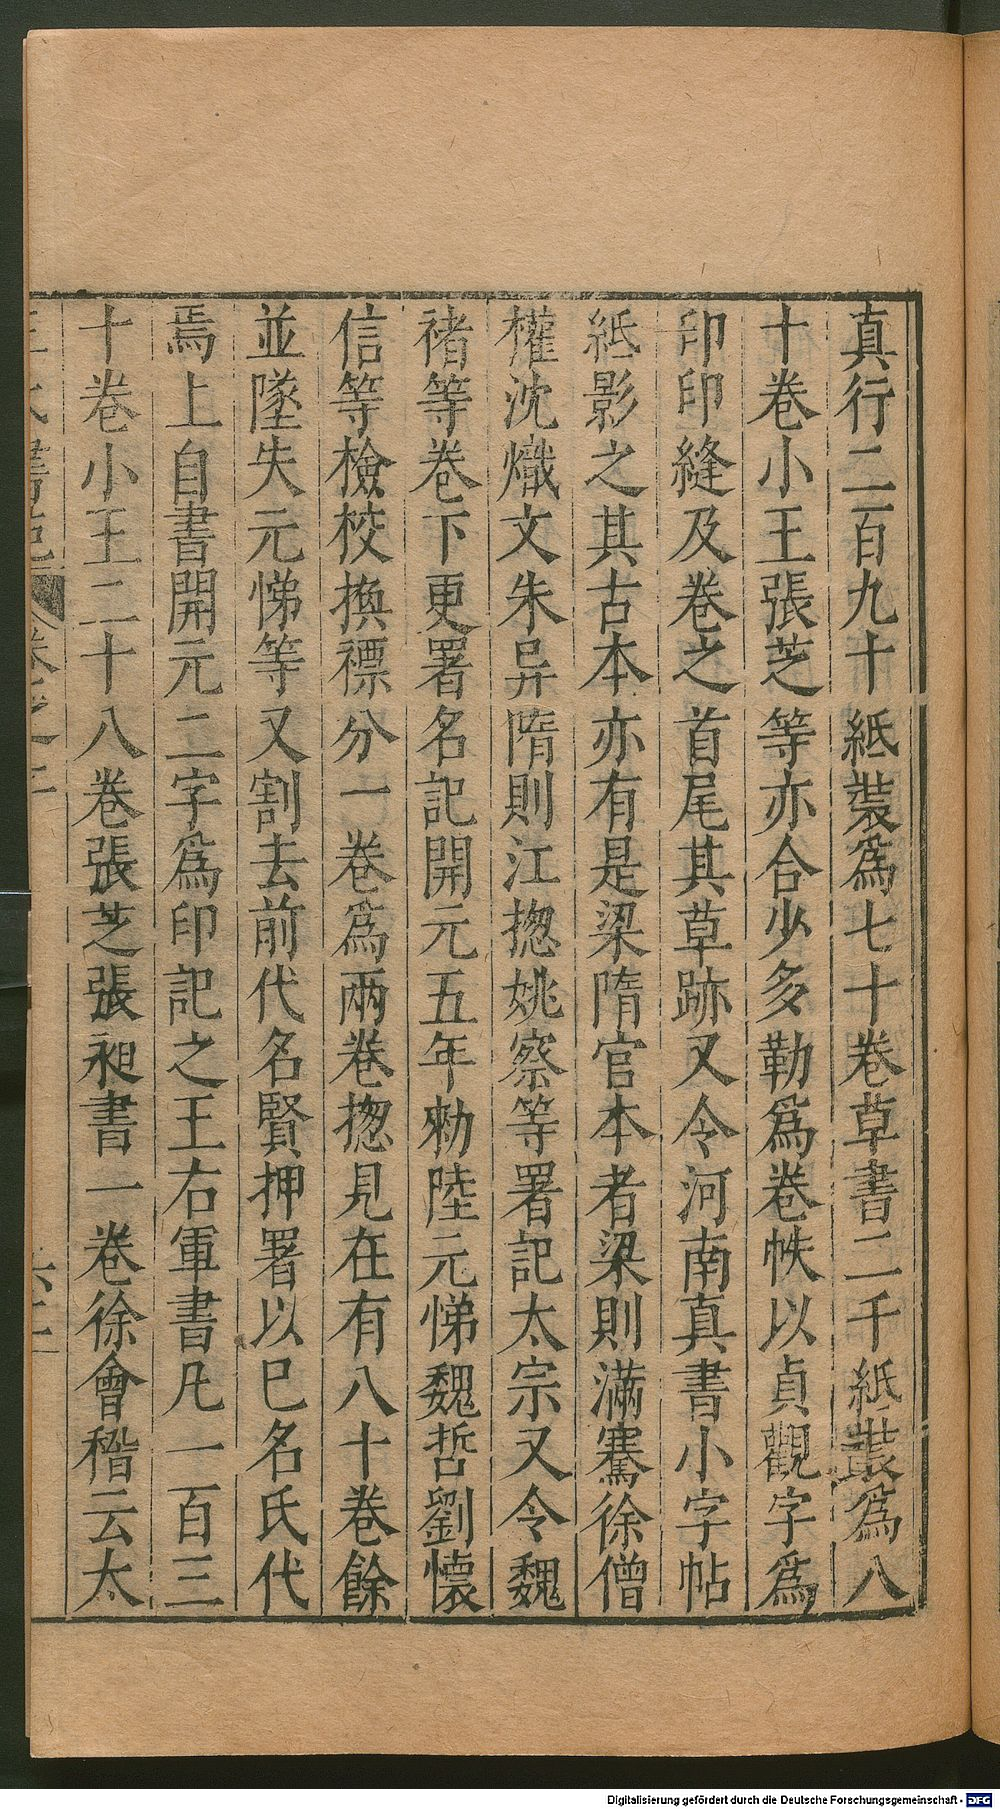 真行二百九十紙裝爲七十卷草書二千紙裝爲八
十卷小王張芝等亦合少多勒爲卷帙以貞觀字爲
印印縫及卷之首尾其草跡又令河南真書小字帖
紙影之其古本亦有是梁隋官本者梁則滿騫徐僧
權沈熾文朱异隋則江揔姚察等署記太宗又令魏
褚等卷下更署名記開元五年勑陸元悌魏哲劉懷
信等檢校換褾分一卷爲兩卷揔見在有八十卷餘
並墜失元悌等又割去前代名賢押署以巳名氏代
焉上自書開元二字爲印記之王右軍書凡一百三
十卷小王二十八卷張芝張昶書一卷徐會稽云太
王氏書苑 卷之二
Digitalisierung gefördert durch die Deutsche Forschungsgemeinschaft - DFG